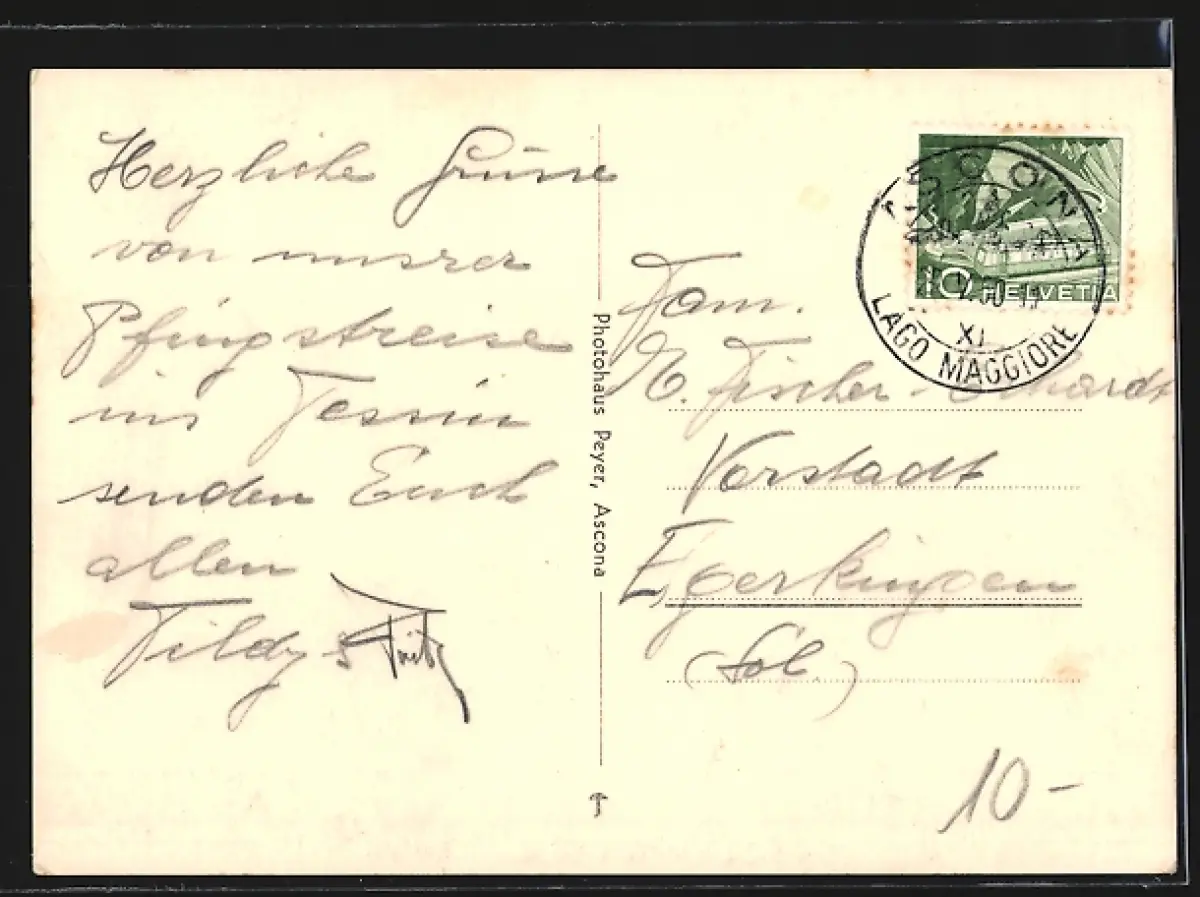 Herzliche Grüsse
von unsrer
Pfingstreise
ins Tessin
senden Euch
allen
Tildy & Fritz
Photohaus Peyer, Ascona
ASCONA
V.50-
XI
LAGO MAGGIORE
10 HELVETIA
Fam.
Fischer -
Vorstadt
Egerkingen
(Sol.)
10-